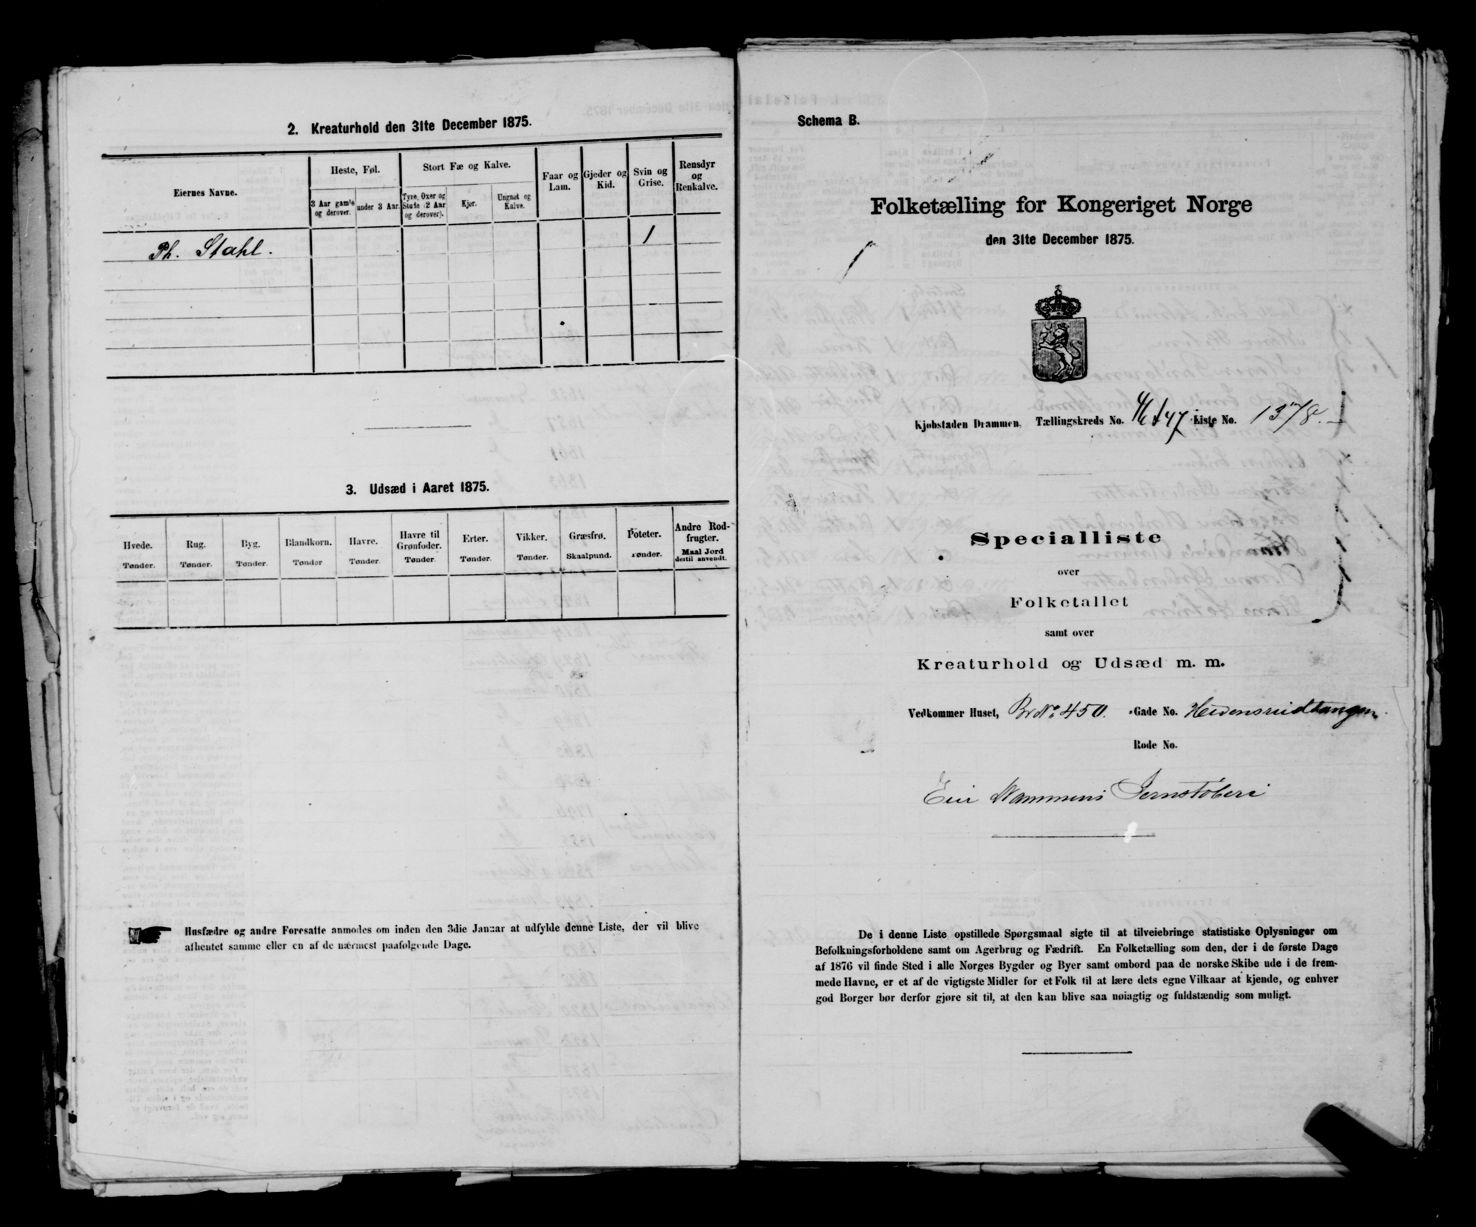 2. Kreaturhold den 31te December 1875.
Eiernes Navne.
Heste, Føl.
3 Aar gamle og derover.
under 3 Aar.
Stort Fæ og Kalve.
Tyre, Oxer og Stude (2 Aar og derover).
Kjør.
Ungnøt og Kalve.
Faar og Lam.
Gjeder og Kid.
Svin og Grise.
Rensdyr og Renkalve.
Ph. Stahl. 1
3. Udsæd i Aaret 1875.
Hvede. Tønder.
Rug. Tønder.
Byg. Tønder.
Blandkorn. Tønder
Havre. Tønder.
Havre til Grønfoder. Tønder.
Erter. Tønder.
Vikker. Tønder.
Græsfrø. Skaalpund.
Poteter. Tønder.
Andre Rodfrugter. Maal Jord dertil anvendt.
Husfædre og andre Foresatte anmodes om inden den 3die Januar at udfylde denne Liste, der vil blive
afhentet samme eller en af de nærmest paafølgende Dage.
Schema B.
Folketælling for Kongeriget Norge
den 31te December 1875.
Kjøbstaden Drammen. Tællingskreds No. Liste No. 1378.
Specialliste
over
Folketallet
samt over
Kreaturhold og Udsæd m. m.
Vedkommer Huset, Br No 450. Gade No.
Rode No.
De i denne Liste opstillede Spørgsmaal sigte til at tilveiebringe statistiske Oplysninger om
Befolkningsforholdene samt om Agerbrug og Fædrift. En Folketælling som den, der i de første Dage
af 1876 vil finde Sted i alle Norges Bygder og Byer samt ombord paa de norske Skibe ude i de frem-
mede Havne, er et af de vigtigste Midler for et Folk til at lære dets egne Vilkaar at kjende, og enhver
god Borger bør derfor gjøre sit til, at den kan blive saa nøiagtig og fuldstændig som muligt.